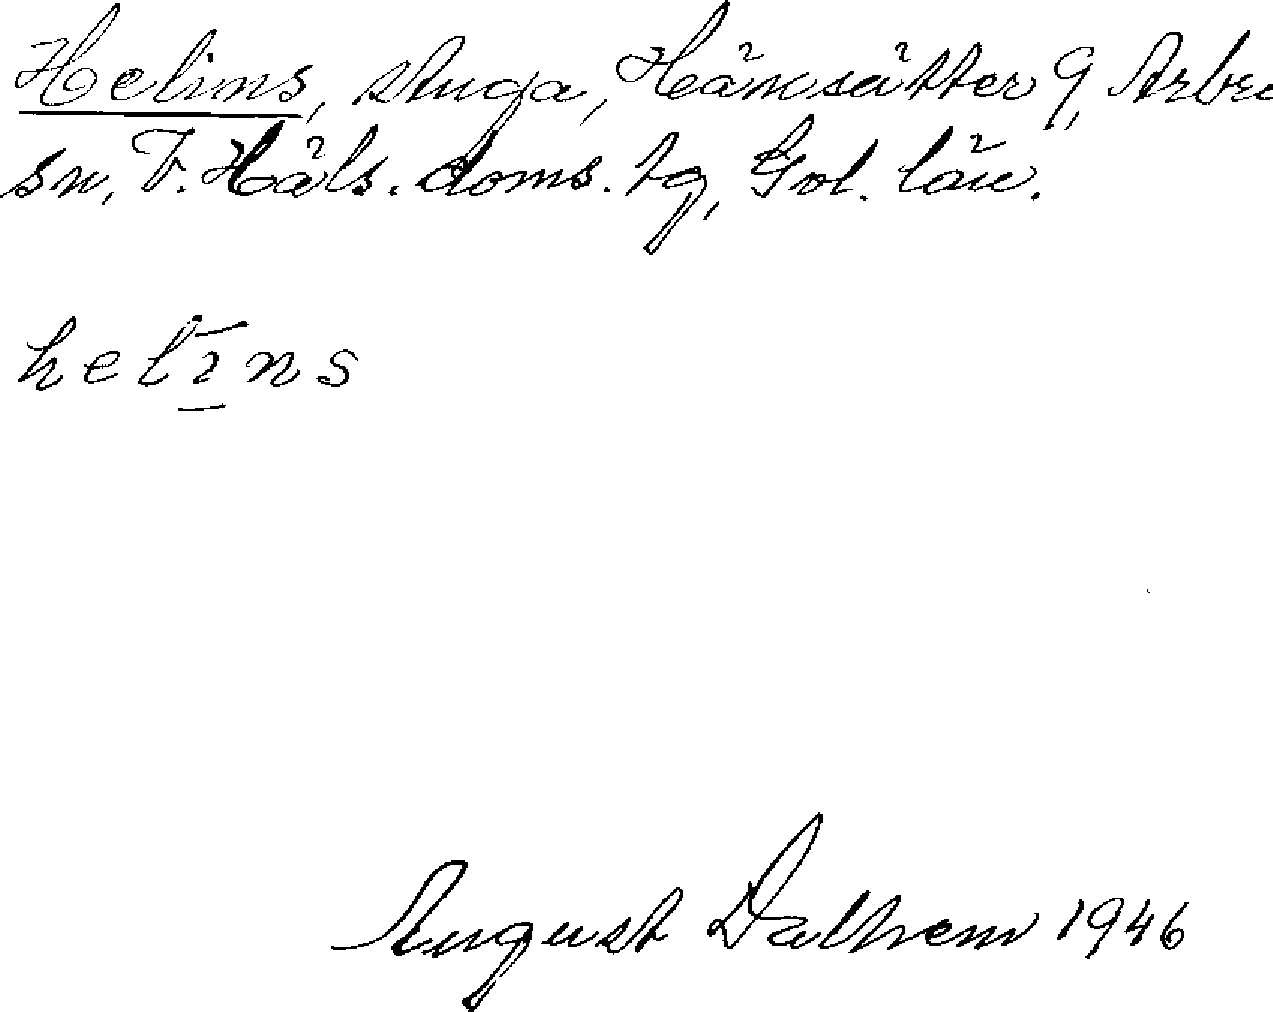 Helins, stuga, Hänsätter 9, Arbrå
sn, V. Häls. doms. tg, Gvl. län.
helīns
August Dalhem 1946